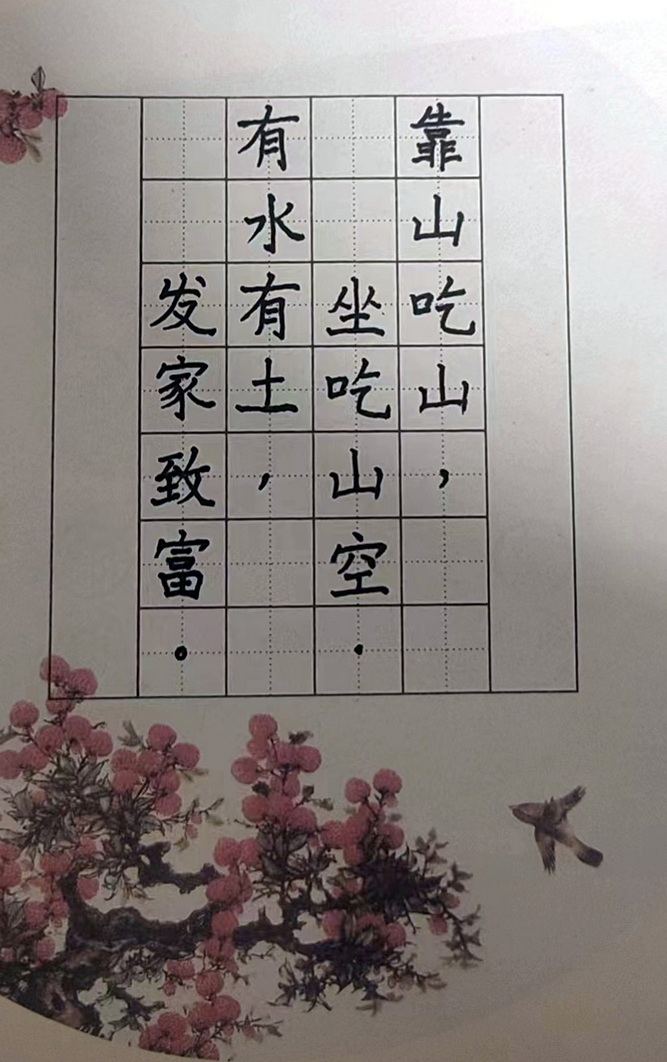 靠山吃山，
坐吃山空。
有水有土，
发家致富。